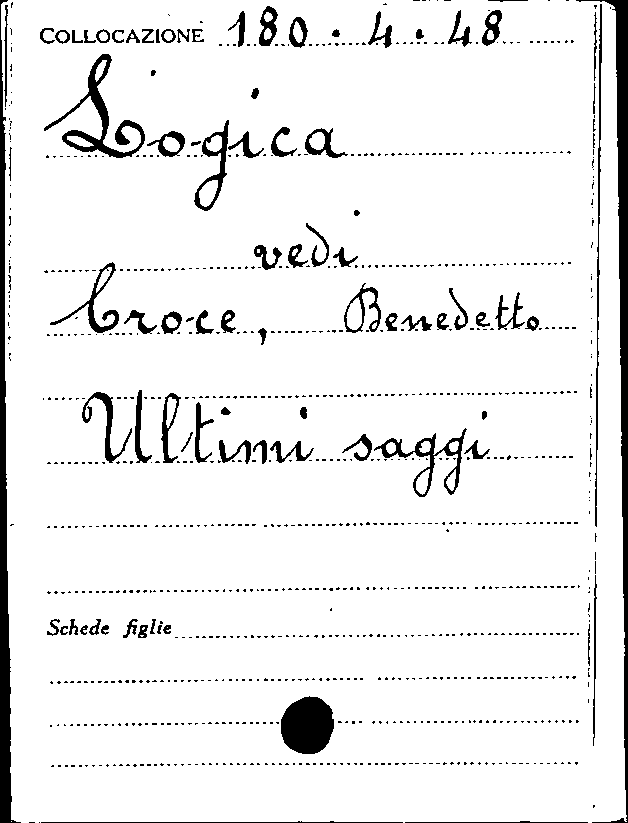 COLLOCAZIONE 180.4.48
Logica
vedi
Croce, Benedetto
Ultimi saggi
Schede figlie